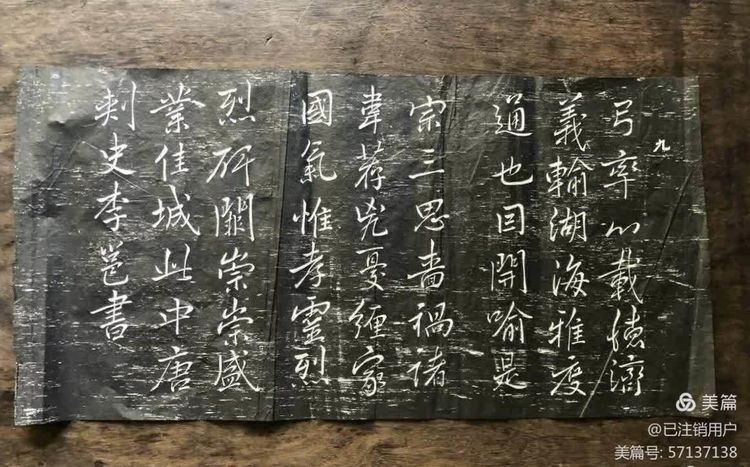 九
弓率以載德濟
義輸湖海雅度
通也目開喻是
宗三思嗇禍諸
韋荐兇憂纏家
國氣惟孝靈烈
烈研闕崇崇盛
業佳城此中唐
刺史李邕書
美篇
@已注销用户
美篇号: 57137138